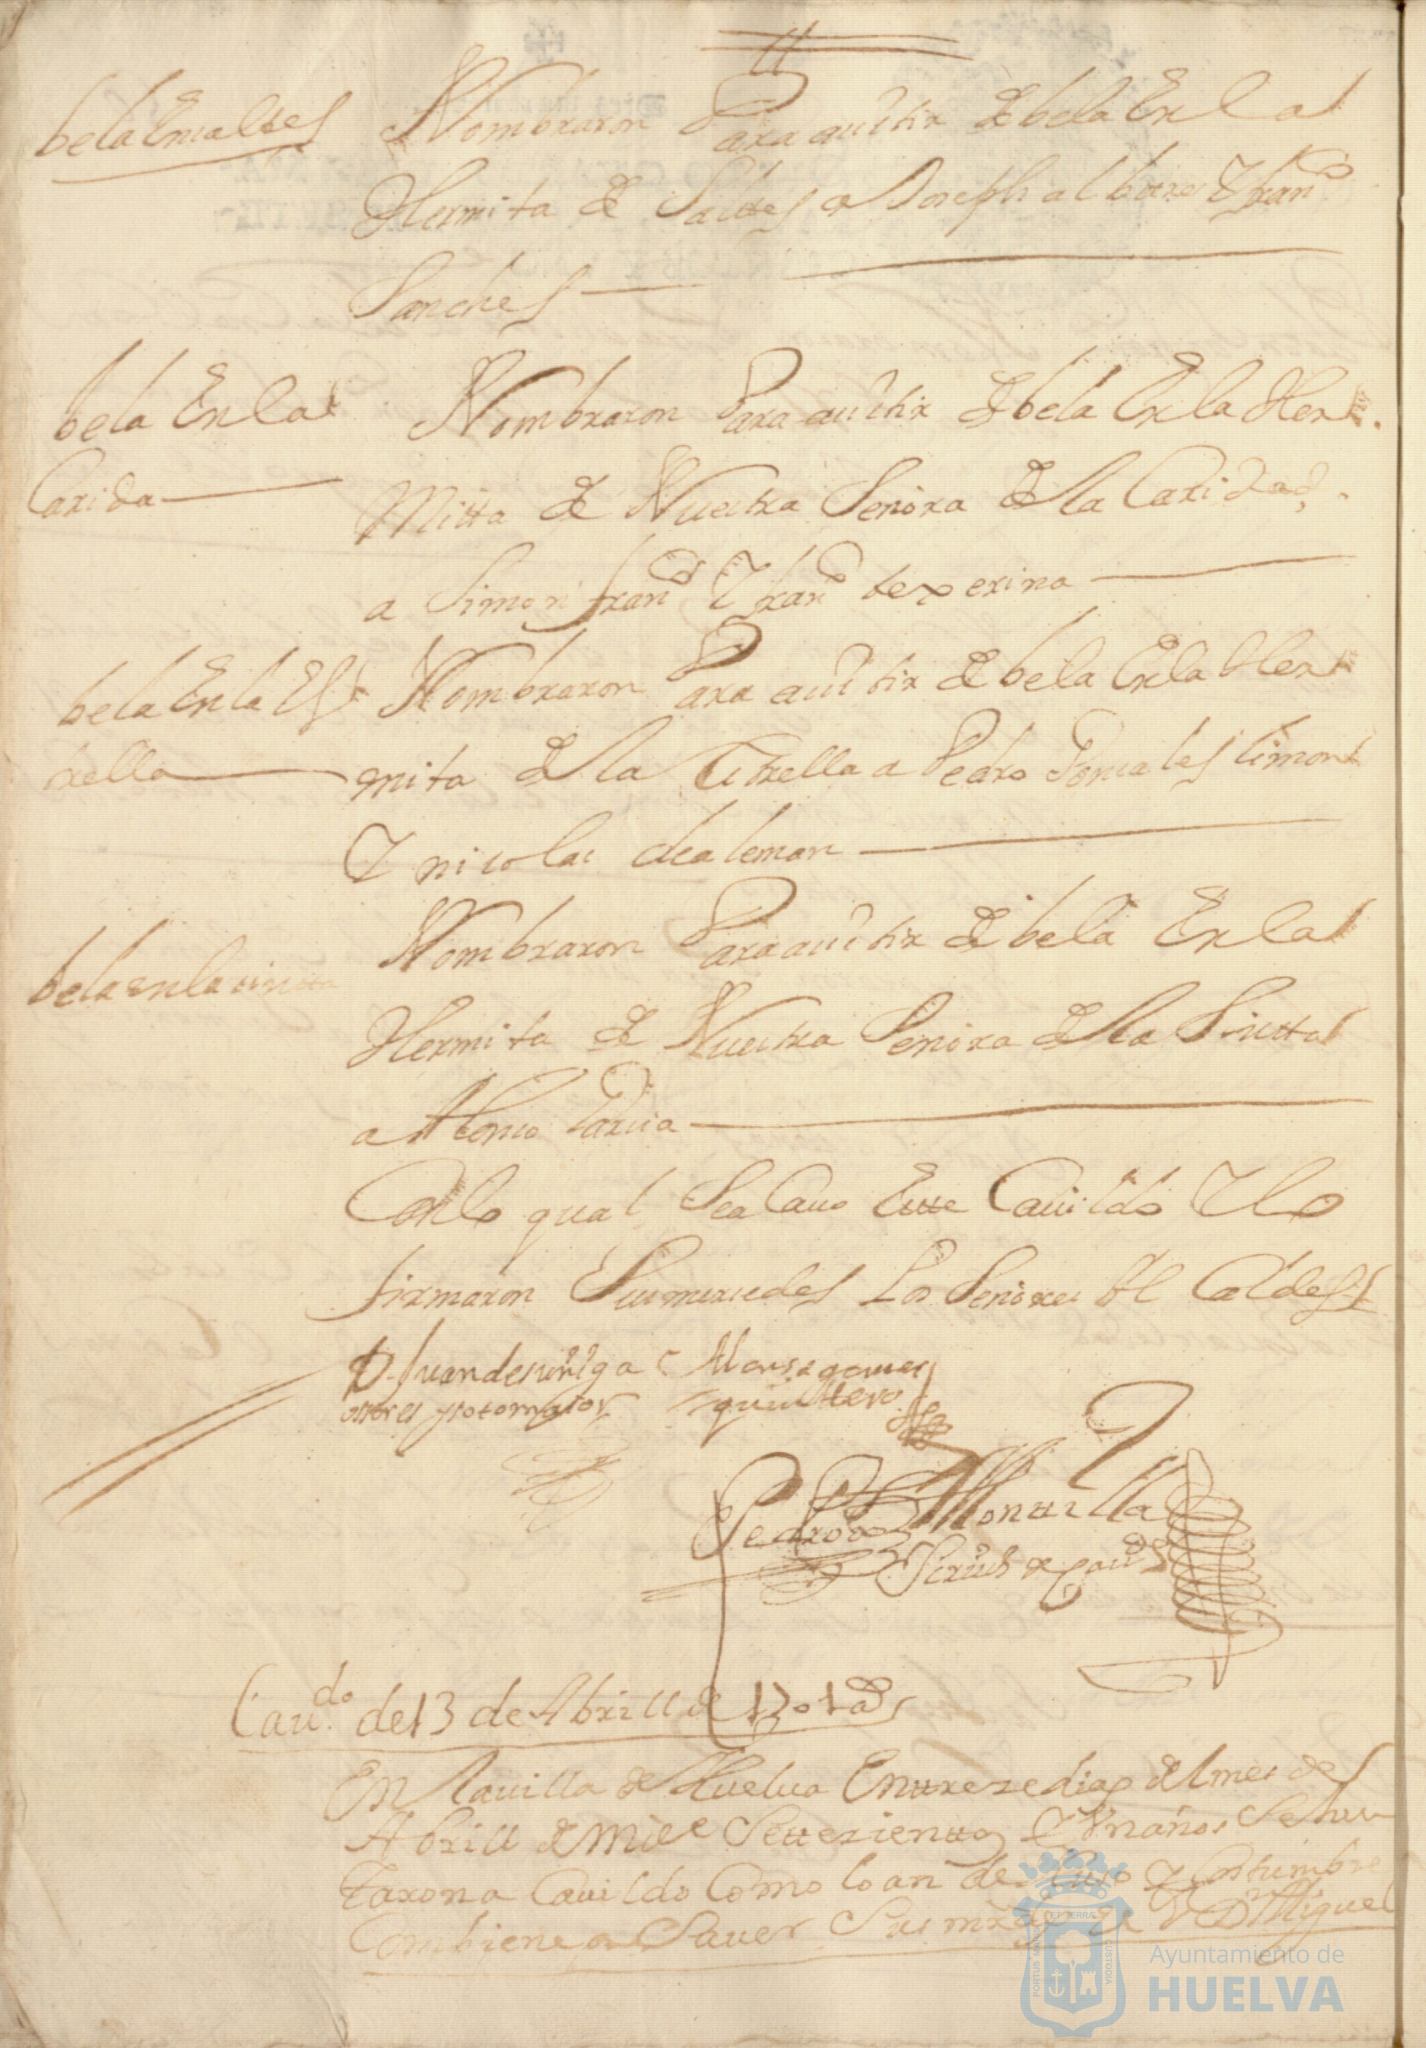 bela En saltes
Nombraron Para asistir de bela En la
Hermita de Saltes a Joseph albares Y fran.co
Sanches
bela En la
Caridad
Nombraron Para asistir de bela En la Her
mitta de Nuestra Señora de la Caridad
a Simon fran.co Y fran.co texerina
bela En la Es
trella
Nombraron Para asistir de bela En la Her
mita de la Estrella a Pedro Gonsales limon
Y nicolas de aleman
bela en la sintta
Nombraron Para asistir de bela En la
Hermita de Nuestra Señora de la Sintta
a Alonso Garcia
Con lo qual Se acauo Este Cauildo Y lo
firmaron Sus mercedes Los Señores Alcaldes
D. Juan de suñiga
y sotomaior
Alonso gomes
quinttero
Pedro de Monttilla
Scriu.o de Cau.do
Cau.do de 13 de Abrill de 1701 a.s
En la uilla de Huelua En ttreze dias del mes de
Abrill de Mill Settezienttos Y Vn años Se Jun
taron a Cauildo Como lo an de Vso Y Costumbre
Combiene a Sauer Sus mrds D. Miguel
PORTUS MARIS
ET TERRÆ
CUSTODIA
Ayuntamiento de
HUELVA